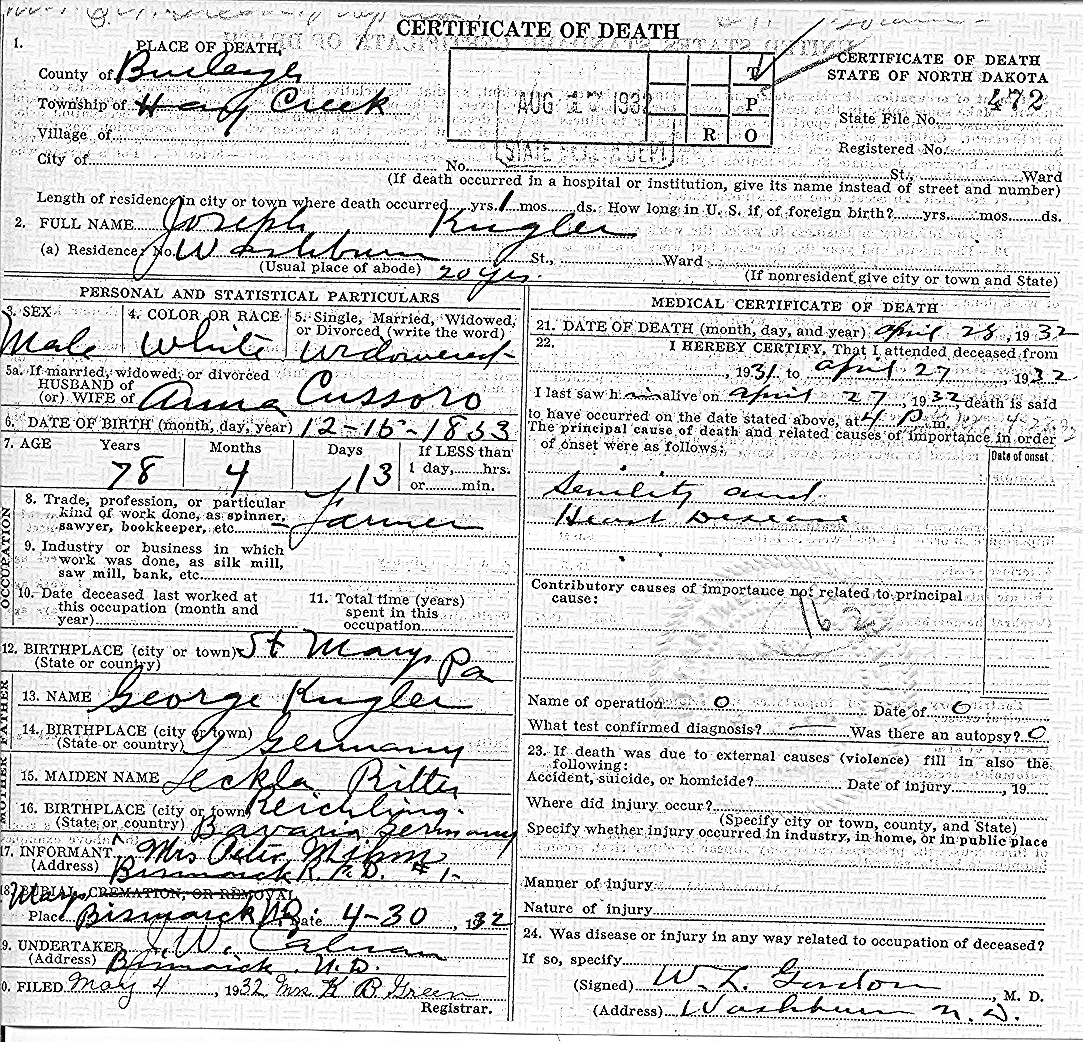 CERTIFICATE OF DEATH
1. PLACE OF DEATH,
County of Burleigh
Township of Hay Creek
Village of
City of
AUG 1932
STATE DEPT
T
P
R O
CERTIFICATE OF DEATH
STATE OF NORTH DAKOTA
472
State File No.
Registered No.
No. St., Ward
(If death occurred in a hospital or institution, give its name instead of street and number)
Length of residence in city or town where death occurred yrs. 1 mos. ds. How long in U. S. if of foreign birth? yrs. mos. ds.
2. FULL NAME Joseph Kugler
(a) Residence: No. Washburn St., Ward
(Usual place of abode) 20 yrs. (If nonresident give city or town and State)
PERSONAL AND STATISTICAL PARTICULARS
3. SEX 4. COLOR OR RACE 5. Single, Married, Widowed,
or Divorced (write the word)
Male White Widowered
5a. If married, widowed, or divorced
HUSBAND of
(or) WIFE of Anna Cussoro
6. DATE OF BIRTH (month, day, year) 12-15-1853
7. AGE Years Months Days If LESS than
1 day, hrs.
or min.
78 4 13
OCCUPATION
8. Trade, profession, or particular
kind of work done, as spinner,
sawyer, bookkeeper, etc. Farmer
9. Industry or business in which
work was done, as silk mill,
saw mill, bank, etc.
10. Date deceased last worked at
this occupation (month and
year)
11. Total time (years)
spent in this
occupation
12. BIRTHPLACE (city or town) St Marys Pa
(State or country)
FATHER
13. NAME George Kugler
14. BIRTHPLACE (city or town)
(State or country) Germany
MOTHER
15. MAIDEN NAME Teckla Ritter
16. BIRTHPLACE (city or town) Reichling
(State or country) Bavaria Germany
17. INFORMANT Mrs Peter
(Address) Bismarck R. F. D. #1
18. BURIAL, CREMATION, OR REMOVAL
Marys
Place Bismarck ND. Date 4-30, 1932
9. UNDERTAKER J. W. Calnan
(Address) Bismarck N.D.
0. FILED May 4, 1932 Mrs. K B Green
Registrar.
MEDICAL CERTIFICATE OF DEATH
21. DATE OF DEATH (month, day, and year) April 28, 1932
22. I HEREBY CERTIFY, That I attended deceased from
, 1931 to April 27, 1932
I last saw him alive on April 27, 1932, death is said
to have occurred on the date stated above, at 4 P. m.
The principal cause of death and related causes of importance in order
of onset were as follows:
Date of onset
Senility and
Heart Disease
Contributory causes of importance not related to principal
cause:
162
Name of operation 0 Date of 0
What test confirmed diagnosis? — Was there an autopsy? 0
23. If death was due to external causes (violence) fill in also the
following:
Accident, suicide, or homicide? Date of injury , 19
Where did injury occur?
(Specify city or town, county, and State)
Specify whether injury occurred in industry, in home, or in public place
Manner of injury
Nature of injury
24. Was disease or injury in any way related to occupation of deceased?
If so, specify
(Signed) W. L. Gordon, M. D.
(Address) Washburn N. D.